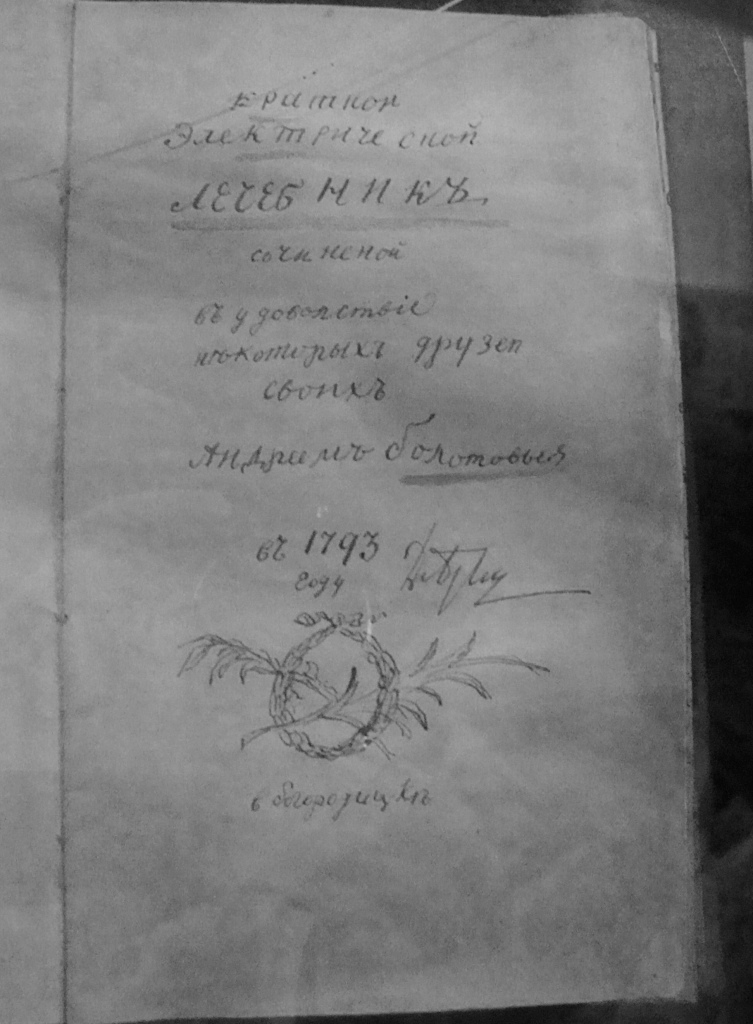 краткой
Электрической
ЛЕЧЕБНИКЪ
сочиненой
въ удовольствіе
нѣкоторыхъ друзей
своихъ
Андреемъ болотовымъ
въ 1793
году
в богородицкѣ